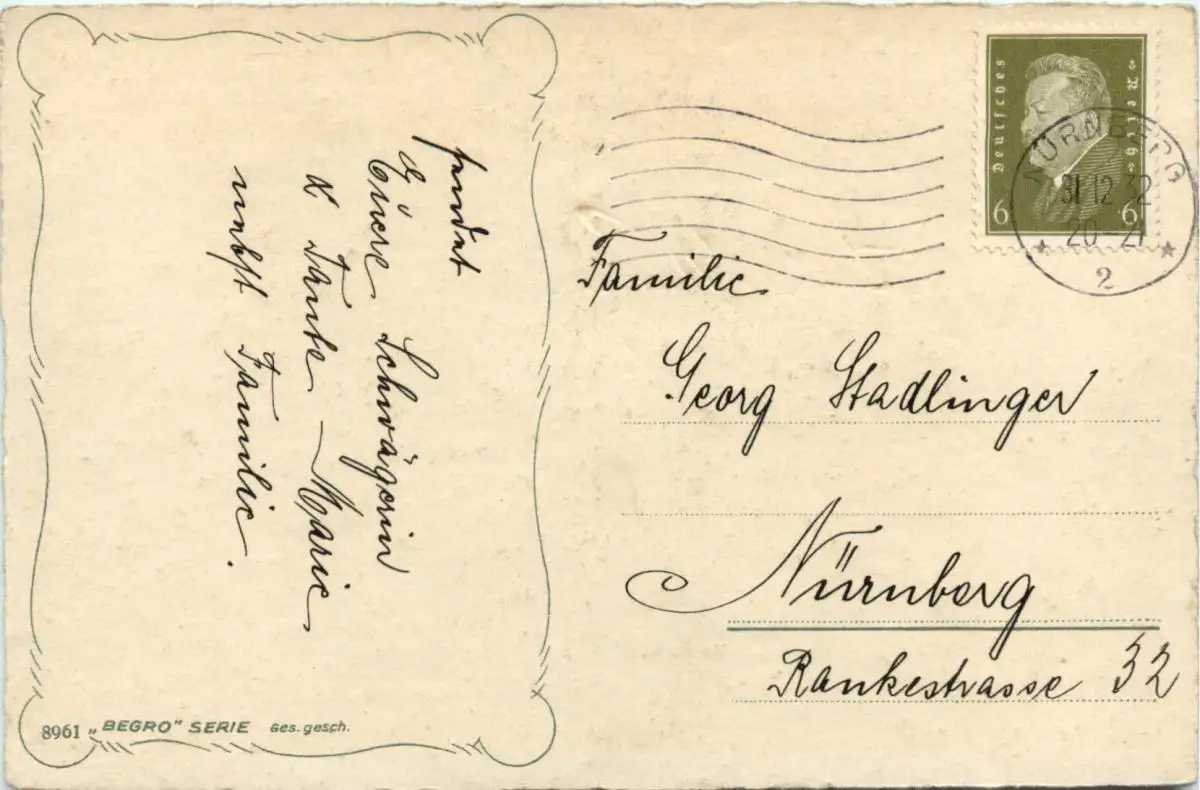 sendet
Euere Schwägerin
& Tante – Marie
nebst Familie.
Deutsches Reich
6 6
NÜRNBERG
31.12.32
20–21
2
Familie
Georg Stadlinger
Nürnberg
Rankestrasse 32
8961 „BEGRO" SERIE Ges. gesch.